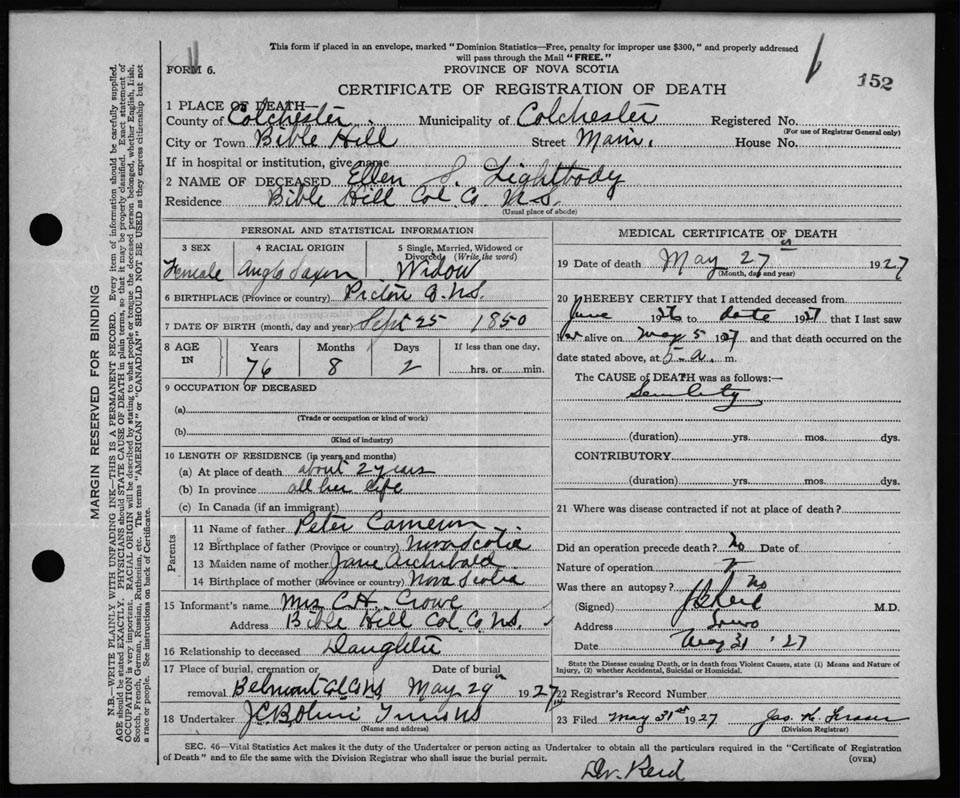 This form if placed in an envelope, marked "Dominion Statistics—Free, penalty for improper use $300," and properly addressed
will pass through the Mail "FREE."
FORM 6.
PROVINCE OF NOVA SCOTIA
152
CERTIFICATE OF REGISTRATION OF DEATH
1 PLACE OF DEATH—
County of Colchester Municipality of Colchester Registered No.
(For use of Registrar General only)
City or Town Bible Hill Street Main. House No.
If in hospital or institution, give name
2 NAME OF DECEASED Ellen S. Lightbody
Residence Bible Hill Col. Co. N.S.
(Usual place of abode)
PERSONAL AND STATISTICAL INFORMATION
3 SEX 4 RACIAL ORIGIN 5 Single, Married, Widowed or
Divorced (Write the word)
Female Anglo Saxon Widow
6 BIRTHPLACE (Province or country) Pictou Co. N.S.
7 DATE OF BIRTH (month, day and year) Sept 25 1850
8 AGE IN Years Months Days If less than one day,
76 8 2 hrs. or min.
9 OCCUPATION OF DECEASED
(a)
(Trade or occupation or kind of work)
(b)
(Kind of industry)
10 LENGTH OF RESIDENCE (in years and months)
(a) At place of death about 2 years
(b) In province all her life
(c) In Canada (if an immigrant)
Parents
11 Name of father Peter Cameron
12 Birthplace of father (Province or country) Nova Scotia
13 Maiden name of mother Jane Archibald
14 Birthplace of mother (Province or country) Nova Scotia
15 Informant's name Mrs C.H. Crowe
Address Bible Hill Col. Co. N.S.
16 Relationship to deceased Daughter
17 Place of burial, cremation or Date of burial
removal Belmont Col Co NS May 29 1927
18 Undertaker
(Name and address)
MEDICAL CERTIFICATE OF DEATH
19 Date of death May 27 1927
(Month, day and year)
20 I HEREBY CERTIFY that I attended deceased from
June 1926 to date 1927 that I last saw
her alive on May 5 1927 and that death occurred on the
date stated above, at 5 a. m.
The CAUSE OF DEATH was as follows:—
Senility
(duration) yrs. mos. dys.
CONTRIBUTORY
(duration) yrs. mos. dys.
21 Where was disease contracted if not at place of death?
Did an operation precede death? no Date of
Nature of operation
Was there an autopsy? no
(Signed) Reid M.D.
Address Truro
Date May 31 '27
State the Disease causing Death, or in death from Violent Causes, state (1) Means and Nature of
Injury, (2) whether Accidental, Suicidal or Homicidal.
22 Registrar's Record Number
23 Filed May 31st 1927 Jas. K. Fraser
(Division Registrar)
SEC. 46—Vital Statistics Act makes it the duty of the Undertaker or person acting as Undertaker to obtain all the particulars required in the "Certificate of Registration
of Death" and to file the same with the Division Registrar who shall issue the burial permit.
(OVER)
Dr. Reid
MARGIN RESERVED FOR BINDING
N.B.—WRITE PLAINLY WITH UNFADING INK—THIS IS A PERMANENT RECORD. Every item of information should be carefully supplied.
AGE should be stated EXACTLY. PHYSICIANS should STATE CAUSE OF DEATH in plain terms, so that it may be properly classified. Exact statement of
OCCUPATION is very important. RACIAL ORIGIN will be described by stating to what people or tongue the deceased person belonged, whether English, Irish,
Scotch, French, German, Russian, Ruthenian, etc. The terms "AMERICAN" or "CANADIAN" SHOULD NOT BE USED as they express citizenship but not
a race or people. See instructions on back of Certificate.